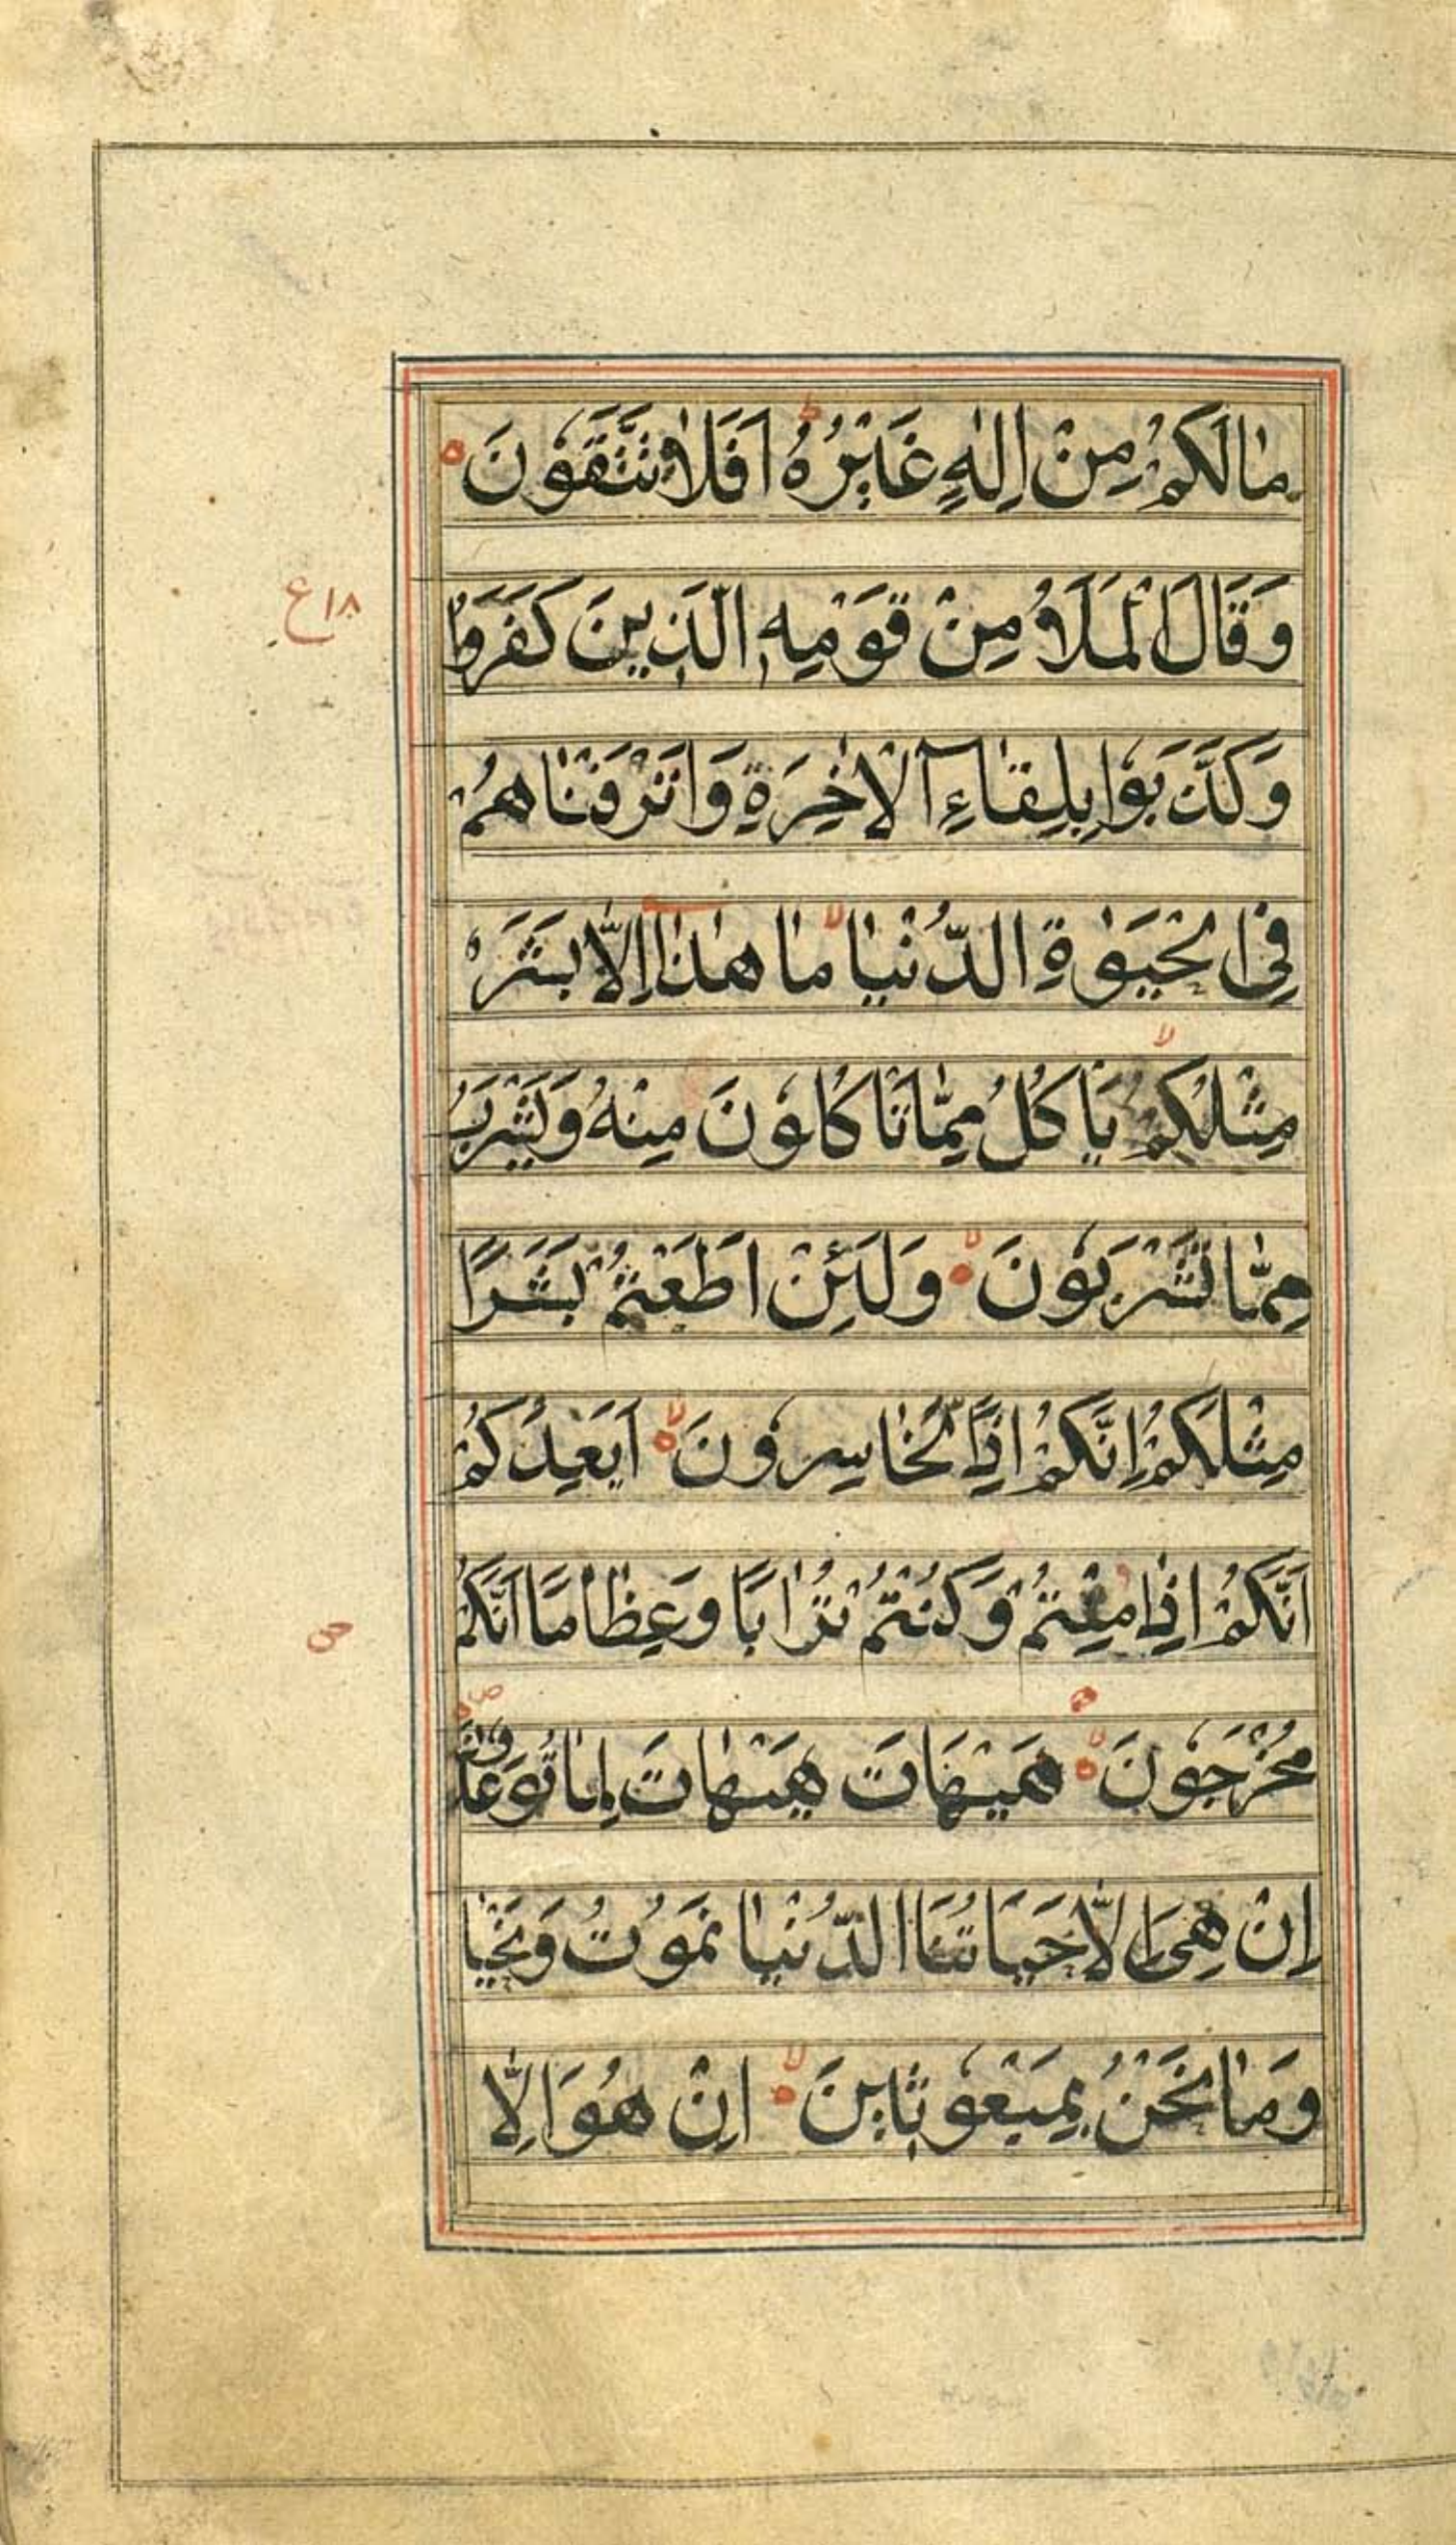 مٰا لَكُمْ مِنْ اِلٰهٍ غَيْرُهُ ط اَفَلاٰ تَتَّقُونَ ه
وَقَالَ الْمَلَاُ مِنْ قَوْمِهِ الَّذِينَ كَفَرُوا
١٨ ع
وَكَذَّبُوا بِلِقٰاءِ الْاٰخِرَةِ وَاَتْرَفْنٰاهُمْ
فِى الْحَيٰوةِ الدُّنْيٰا لا مٰا هٰذٰا اِلّٰا بَشَرٌ
مِثْلُكُمْ لا يَاْكُلُ مِمّٰا تَاْكُلُونَ مِنْهُ وَيَشْرَبُ
مِمّٰا تَشْرَبُونَ لا وَلَئِنْ اَطَعْتُمْ بَشَرًا
مِثْلَكُمْ اِنَّكُمْ اِذًا لَخٰاسِرُونَ لا اَيَعِدُكُمْ
اَنَّكُمْ اِذٰا مِتُّمْ وَكُنْتُمْ تُرٰابًا وَعِظٰامًا اَنَّكُمْ
ص
مُخْرَجُونَ لا هَيْهَاتَ هَيْهٰاتَ لِمٰا تُوعَدُونَ
اِنْ هِىَ اِلّٰا حَيَاتُنَا الدُّنْيٰا نَمُوتُ وَنَحْيٰا
وَمٰا نَحْنُ بِمَبْعُوثِينَ لا اِنْ هُوَ اِلّٰا